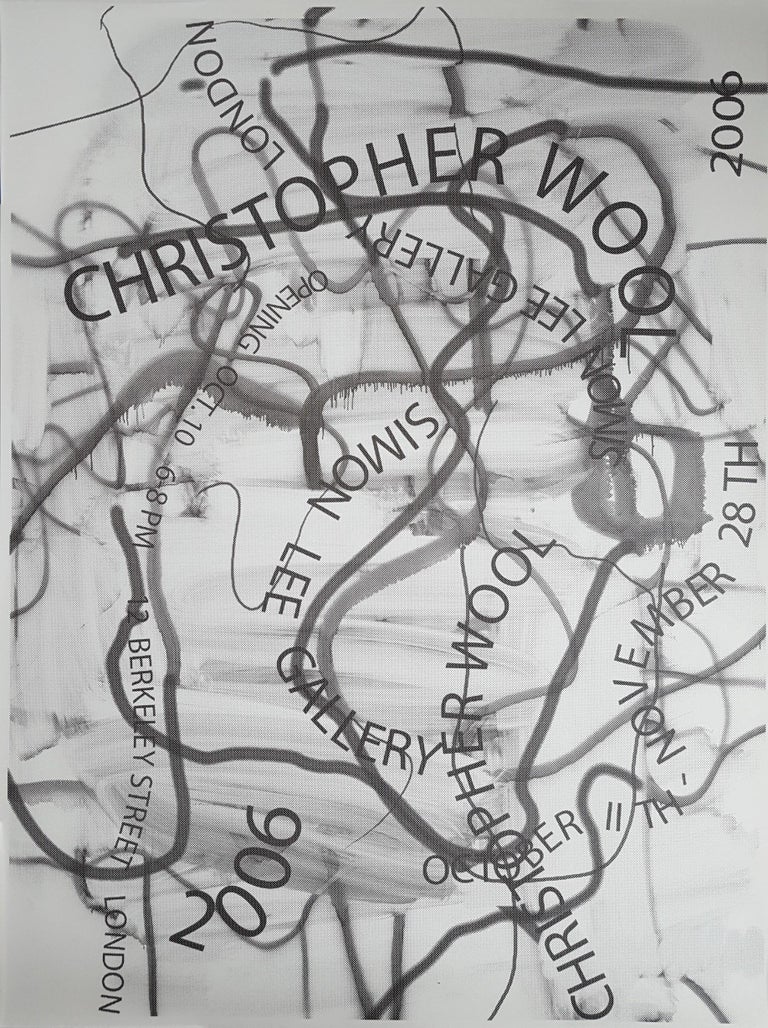 LONDON
2006
CHRISTOPHER WOOL
SIMON LEE GALLERY
OPENING OCT.10 6-8 PM
12 BERKELEY STREET LONDON
SIMON LEE GALLERY
CHRISTOPHER WOOL
2006
OCTOBER 11 TH - NOVEMBER 28 TH